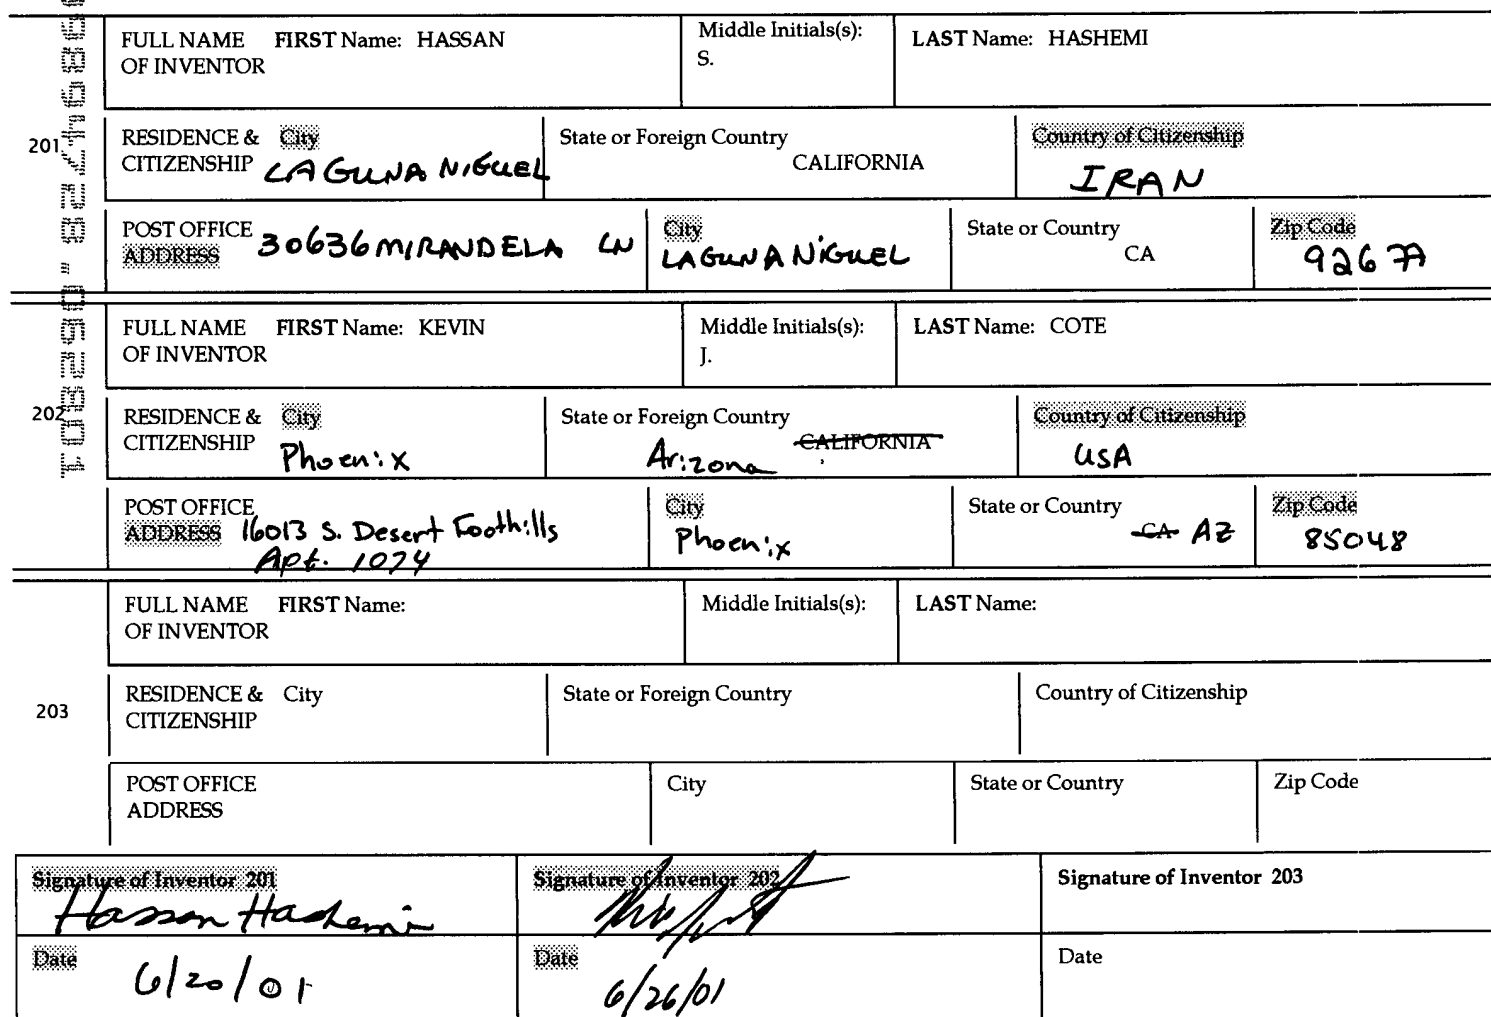 FULL NAME OF INVENTOR FIRST Name: HASSAN Middle Initials(s): S. LAST Name: HASHEMI
201
RESIDENCE & CITIZENSHIP City LAGUNA NIGUEL State or Foreign Country CALIFORNIA Country of Citizenship IRAN
POST OFFICE ADDRESS 30636 MIRANDELA LN City LAGUNA NIGUEL State or Country CA Zip Code
FULL NAME OF INVENTOR FIRST Name: KEVIN Middle Initials(s): J. LAST Name: COTE
202
RESIDENCE & CITIZENSHIP City Phoenix State or Foreign Country Arizona CALIFORNIA Country of Citizenship USA
POST OFFICE ADDRESS 16013 S. Desert Foothills Apt. 1074 City Phoenix State or Country CA AZ Zip Code 85048
FULL NAME OF INVENTOR FIRST Name: Middle Initials(s): LAST Name:
203
RESIDENCE & CITIZENSHIP City State or Foreign Country Country of Citizenship
POST OFFICE ADDRESS City State or Country Zip Code
Signature of Inventor 201 Signature of Inventor 202 Signature of Inventor 203
Hassan Hashemi
Date 6/20/01 Date 6/26/01 Date